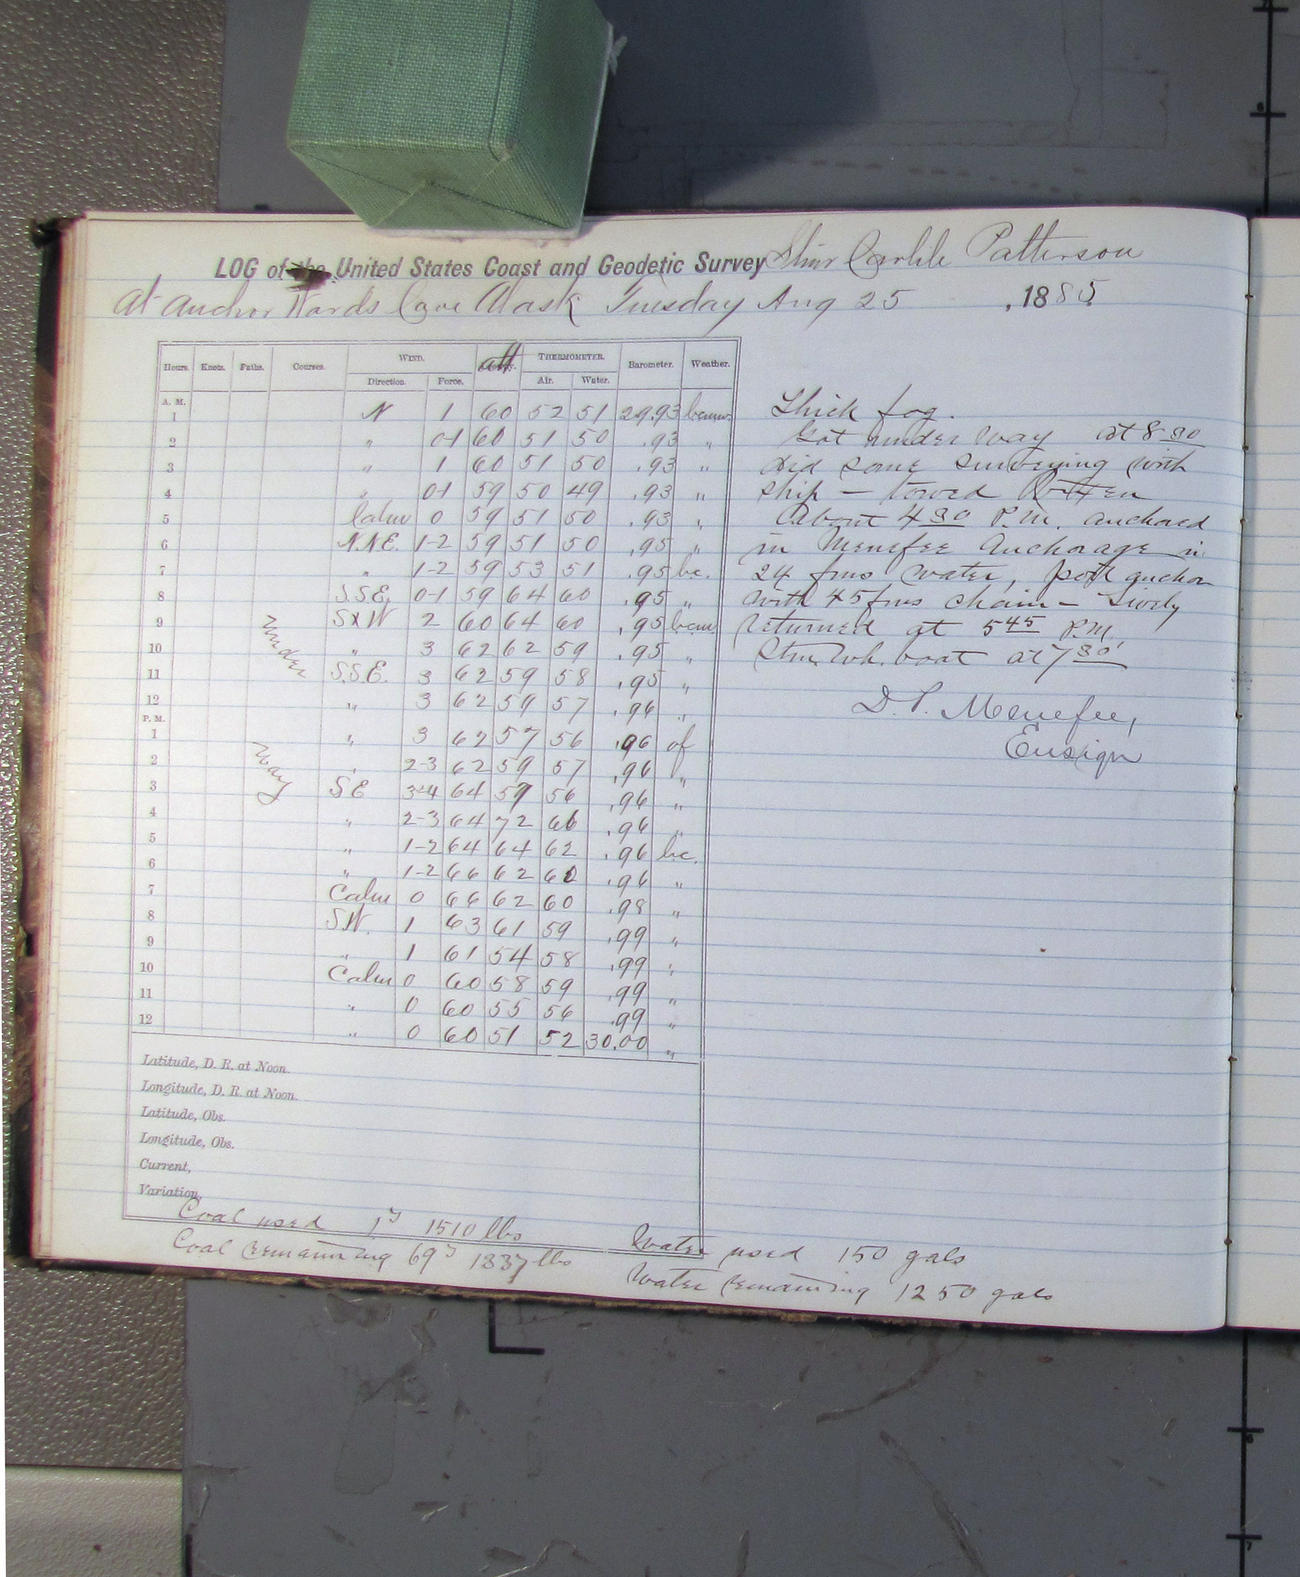 LOG of the United States Coast and Geodetic Survey Stmr Carlile Patterson
At anchor Wards Cove Alask Tuesday Aug 25, 1885
Hours. Knots. Faths. Courses. WIND. Direction. Force. att THERMOMETER. Air. Water. Barometer. Weather.
A. M.
1 N 1 60 52 51 29.93
2 " 0-1 60 51 50 .93 "
3 " 1 60 51 50 .93 "
4 " 0-1 59 50 49 .93 "
5 Calm 0 59 51 50 .93 "
6 N.NE. 1-2 59 51 50 .95 "
7 " 1-2 59 53 51 .95 bc.
8 S.S.E. 0-1 59 64 60 .95 "
9 SxW 2 60 64 60 .95
10 " 3 62 62 59 .95 "
11 S.S.E. 3 62 59 58 .95 "
12 " 3 62 59 57 .96 "
P. M.
1 " 3 62 57 56 .96 of
2 " 2-3 62 59 57 .96 "
3 SE 3-4 64 59 56 .96 "
4 " 2-3 64 72 66 .96 "
5 " 1-2 64 64 62 .96 bc.
6 " 1-2 66 62 60 .96 "
7 Calm 0 66 62 60 .98 "
8 S.W. 1 63 61 59 .99 "
9 " 1 61 54 58 .99 "
10 Calm 0 60 58 59 .99 "
11 " 0 60 55 56 .99 "
12 " 0 60 51 52 30.00 "
Under
Way
Latitude, D. R. at Noon.
Longitude, D. R. at Noon.
Latitude, Obs.
Longitude, Obs.
Current,
Variation,
Coal used 1T 1510 lbs
Coal remaining 69T 1337 lbs
Thick fog.
Got under way at 8-30
did some surveying with
ship — towed
About 4 30 P.M. anchored
in Menefee Anchorage in
24 fms water, port anchor
with 45 fms chain — Lively
returned at 5 45 P.M.
Stm. Wh. boat at 7 30
D. P. Menefee,
Ensign
Water used 150 gals
Water remaining 1250 gals